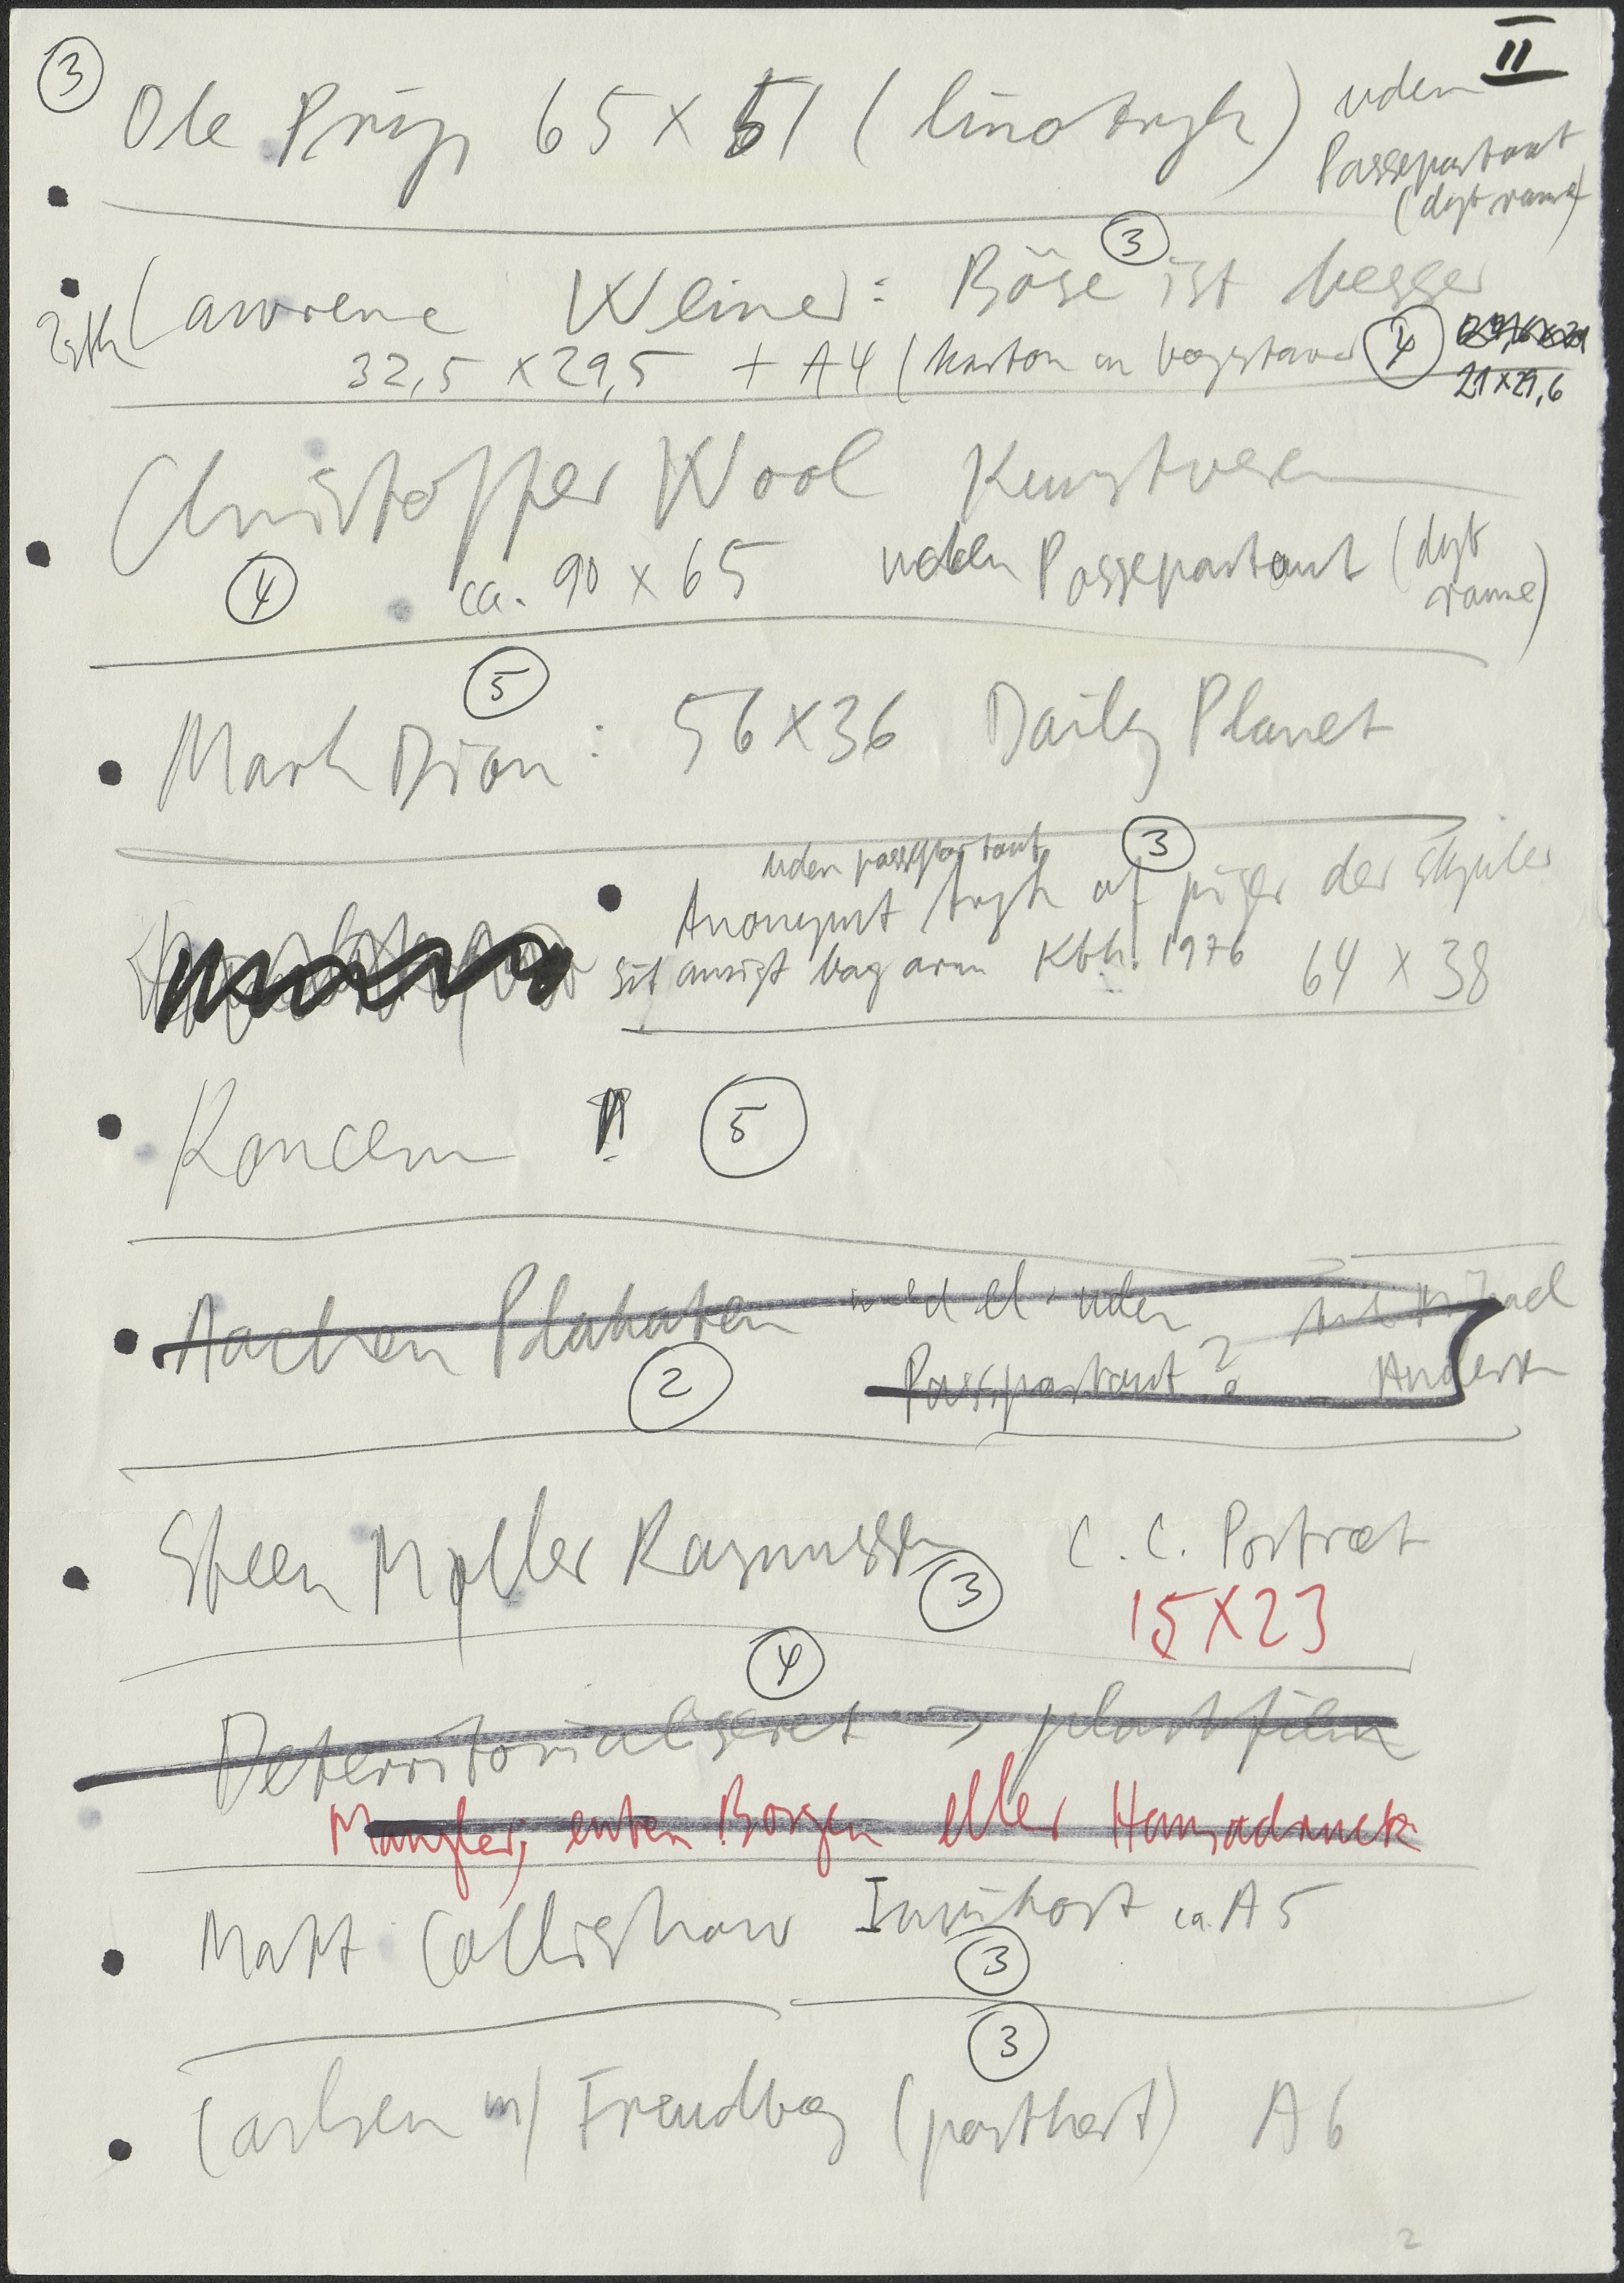 II
③
Ole Prip 65 x 51 (linotryk) uden
Passepartout
(dyb ramme)
③
Lawrence Weiner: Böse ist besser
2 stk
32,5 x 29,5 + A4 (karton m bogstaver ④
21 x 29,6
Christoffer Wool Kunstveren
④ ca. 90 x 65 uden Passepartout (dyb
ramme)
⑤
Mark Dion: 56 x 36 Daily Planet
uden passepartout ③
Anonymt tryk af piger der skjuler
sit ansigt bag arm Kbh. 1976 64 x 38
Koncern ⑤
Aachen Plakaten med el. uden
② Passepartout? Andersen
Steen Møller Rasmussen C.C. Portræt
③ 15 x 23
④
Deterritorialiseret → plastfilm
Mangler, enten Borgen eller Hansadruck
Matt Collishaw Invitkort ca. A5
③
③
Carlsen m/ Freudbog (postkort) A6
2